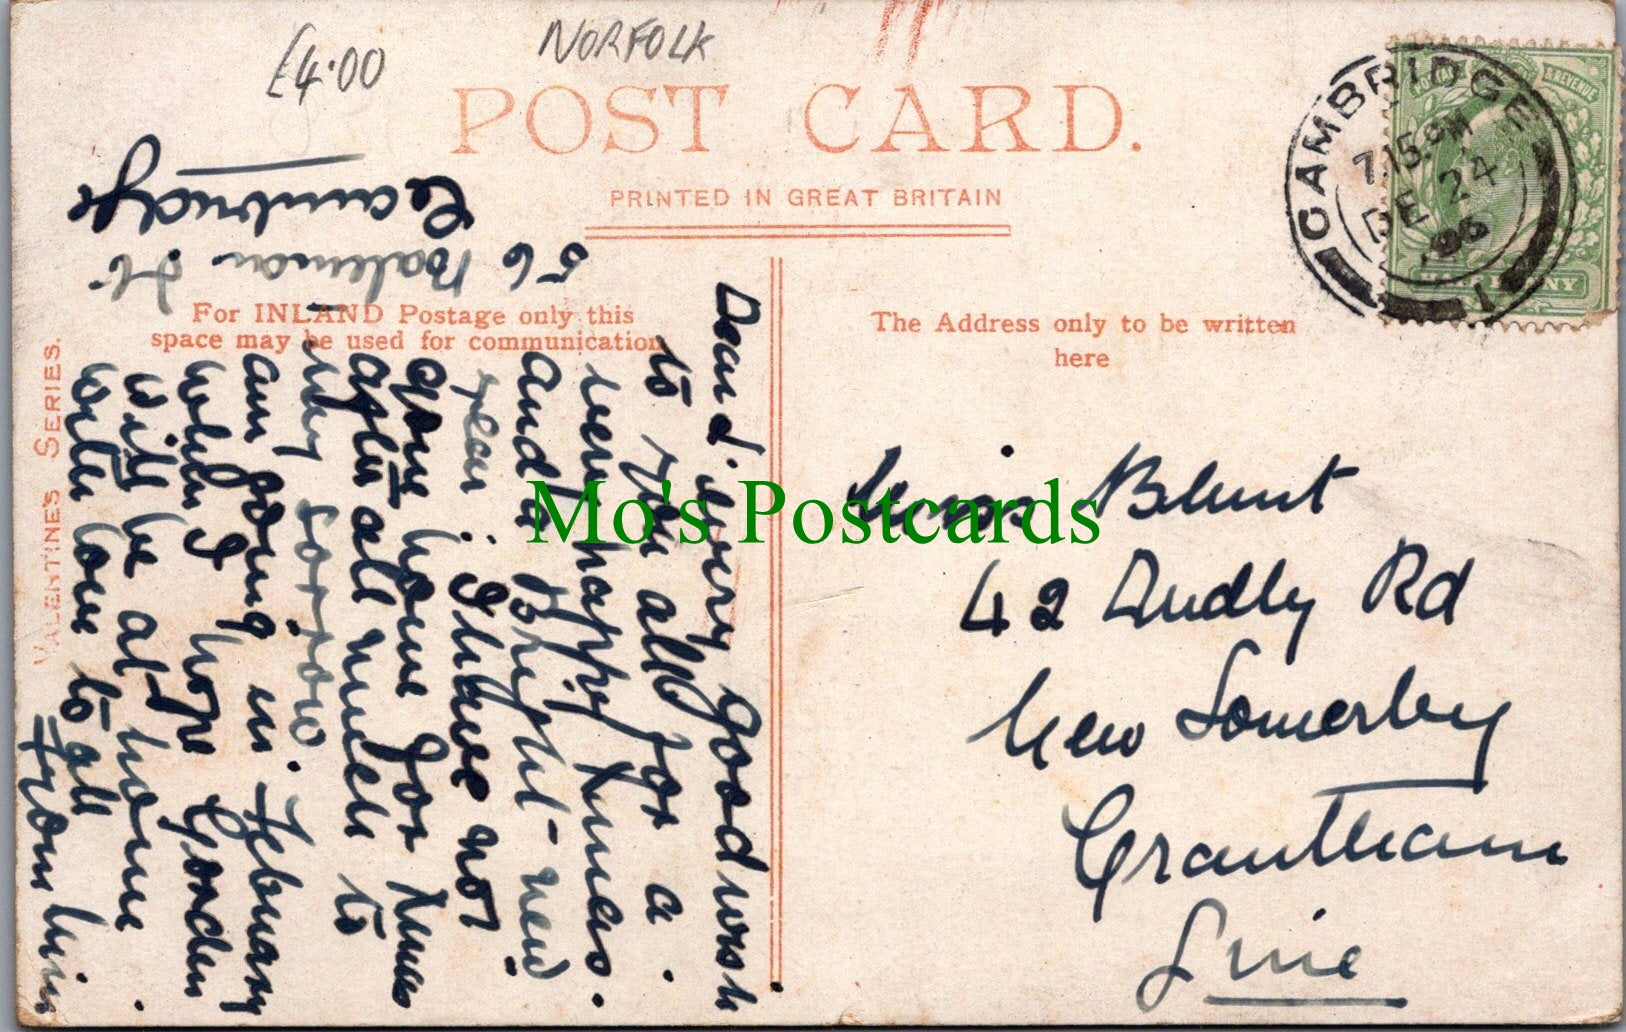 £4.00
NORFOLK
POST CARD.
PRINTED IN GREAT BRITAIN
CAMBRIDGE
7.15 PM
DE 24
06
1
POSTAGE & REVENUE
HALFPENNY
For INLAND Postage only this
space may be used for communication
The Address only to be written
here
VALENTINE'S SERIES.
56 Bateman St
Cambridge
Dear L. every good wish
to you all for a
very happy Xmas.
and a bright new
year. I have not
gone home for Xmas
after all much to
my sorrow
am going in February
when I hope Gorden
will be at home.
with love to all
From
Miss Blunt
42 Dudly Rd
New Somerby
Grantham
Linc
Mo's Postcards